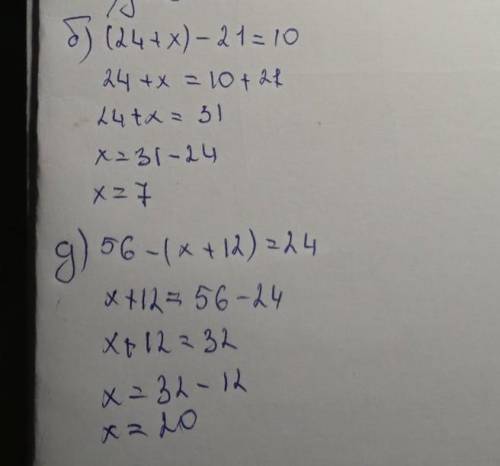 б) (24+x)-21=10
24+x=10+21
24+x=31
x=31-24
x=7
д) 56-(x+12)=24
x+12=56-24
x+12=32
x=32-12
x=20